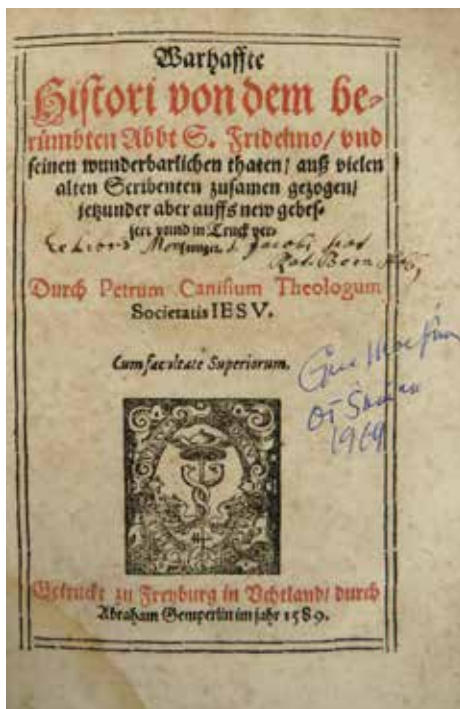 Warhaffte
Histori von dem be-
rümbten Abbt S. Fridolino/ vnd
seinen wunderbarlichen thaten/ auß vielen
alten Scribenten zusamen gezogen/
jetzunder aber auffs new gebes-
sert vnnd in Truck ver-
Durch Petrum Canisium Theologum
Societatis IESV.
Cum facultate Superiorum.
1969
Getruckt zu Freyburg in Vchtland/ durch
Abraham Gemperlin im jahr 1589.